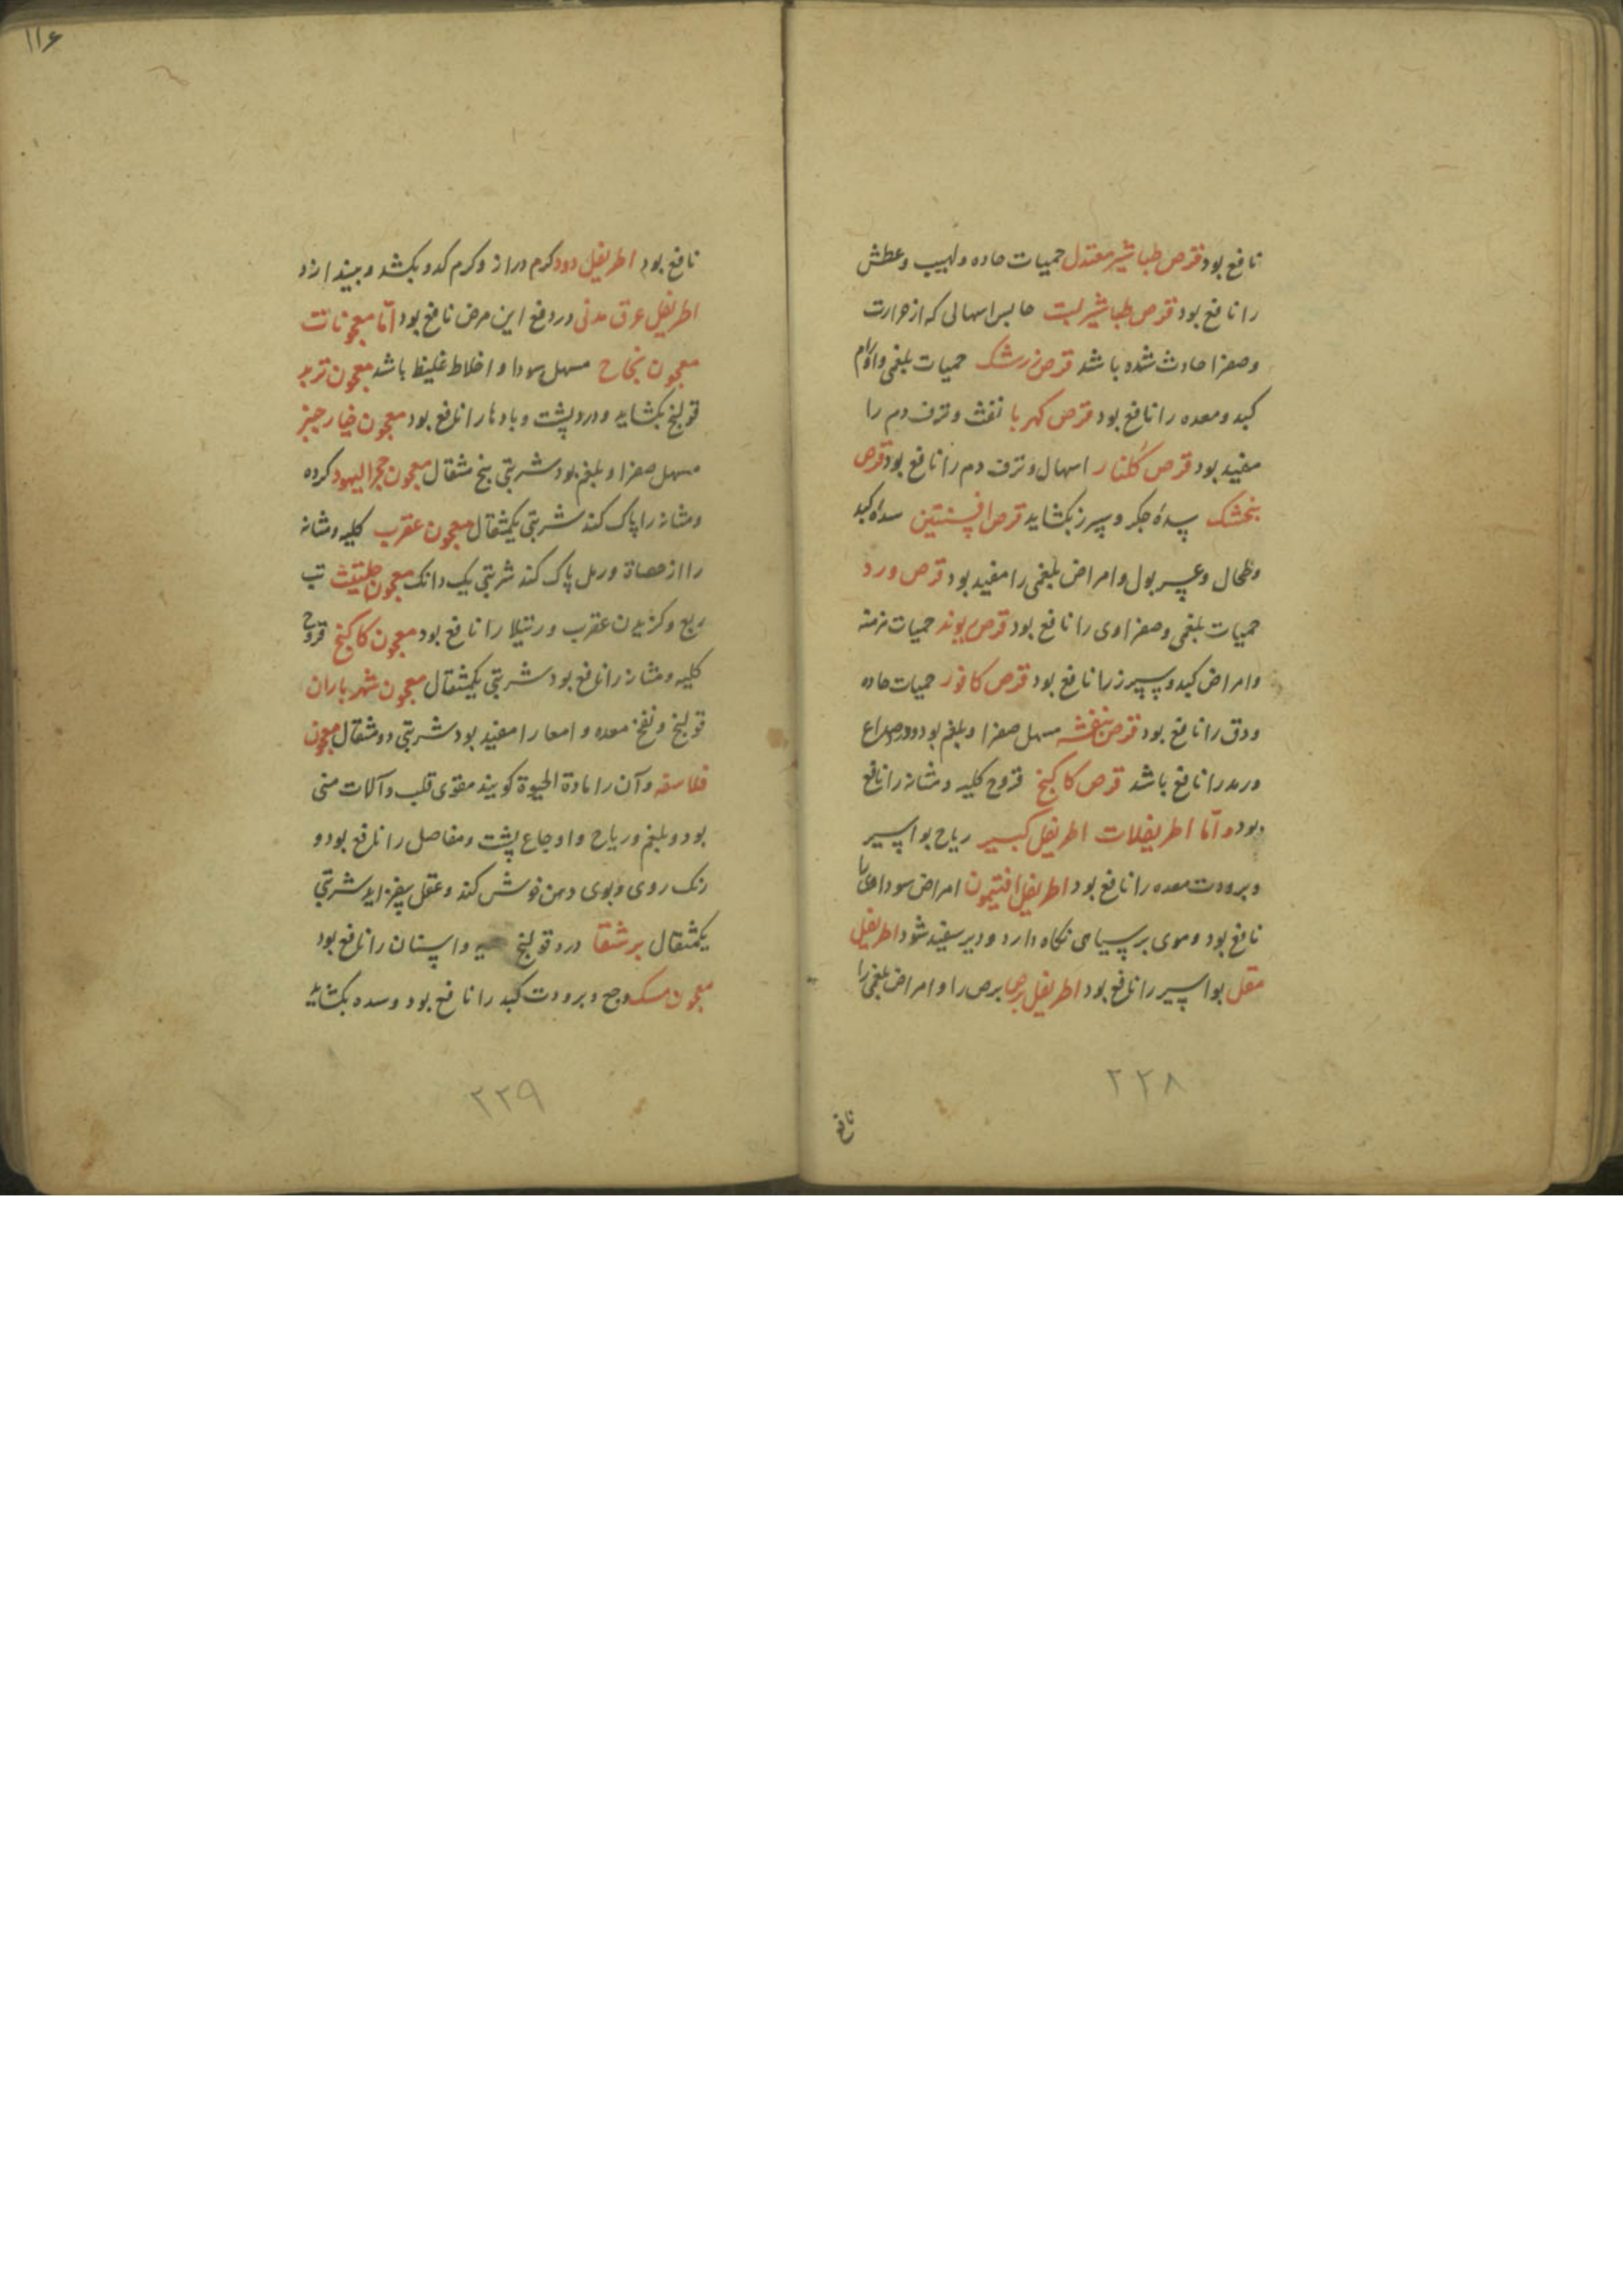 نافع بود قرص طباشیر معتدل حمیات حاده و لهیب و عطش
را نافع بود قرص طباشیر حابس اسهالی که از حرارت
وصفرا حادث شده باشد قرص زرشک حمیات بلغمی واورام
کبد و معده را نافع بود قرص کهربا نفث و نزف دم را
مفید بود قرص گلنار اسهال و نزف دم را نافع بود قرص
بنخشک سده جکر و سپرز بکشاید قرص افسنتین سده کبد
وطحال و عسر بول و امراض بلغمی را مفید بود قرص ورد
حمیات بلغمی و صفراوی را نافع بود قرص ریوند حمیات مزمنه
وامراض کبد و سپرز را نافع بود قرص کافور حمیات حاده
ودق را نافع بود قرص بنفشه مسهل صفرا و بلغم بود و صداع
ورمد را نافع باشد قرص کاکنج قروح کلیه و مثانه را نافع
بود و اما اطریفلات اطریفل کبیر ریاح بواسیر
و برودت معده را نافع بود اطریفل افتیمون امراض سوداوی را
نافع بود و موی بر سیاهی نکاه دارد و دیر سفید شود اطریفل
مقل بواسیر را نافع بود اطریفل برص برص را و امراض بلغمی را
۲۲۸
نافع
۱۱۶
نافع بود اطریفل دود کرم دراز و کرم کدو بکشد و بیندازد
اطریفل عرق مدنی در دفع این مرض نافع بود اما معجونات
معجون نجاح مسهل سودا و اخلاط غلیظ باشد معجون تربد
قولنج بکشاید و درد پشت و بادها را نافع بود معجون خیارجنبر
مسهل صفرا و بلغم بود شربتی پنج مثقال معجون حجرالیهود کرده
ومثانه را پاک کند شربتی یکمثقال معجون عقرب کلیه و مثانه
را از حصاة و رمل پاک کند شربتی یک دانک معجون حلتیث تب
ربع و کزیدن عقرب و رتیلا را نافع بود معجون کاکنج قروح
کلیه و مثانه را نافع بود شربتی یکمثقال معجون شهرباران
قولنج و نفخ معده و امعا را مفید بود شربتی دو مثقال معجون
فلاسفه و آن را مادة الحیوة کویند مقوی قلب و آلات منی
بود و بلغم و ریاح و اوجاع پشت و مفاصل را نافع بود و
رنک روی و بوی دهن خوش کند و عقل بیفزاید شربتی
یکمثقال برشعثا درد قولنج واسنان را نافع بود
معجون مسک وجع و برودت کبد را نافع بود و سده بکشاید
۲۲۹